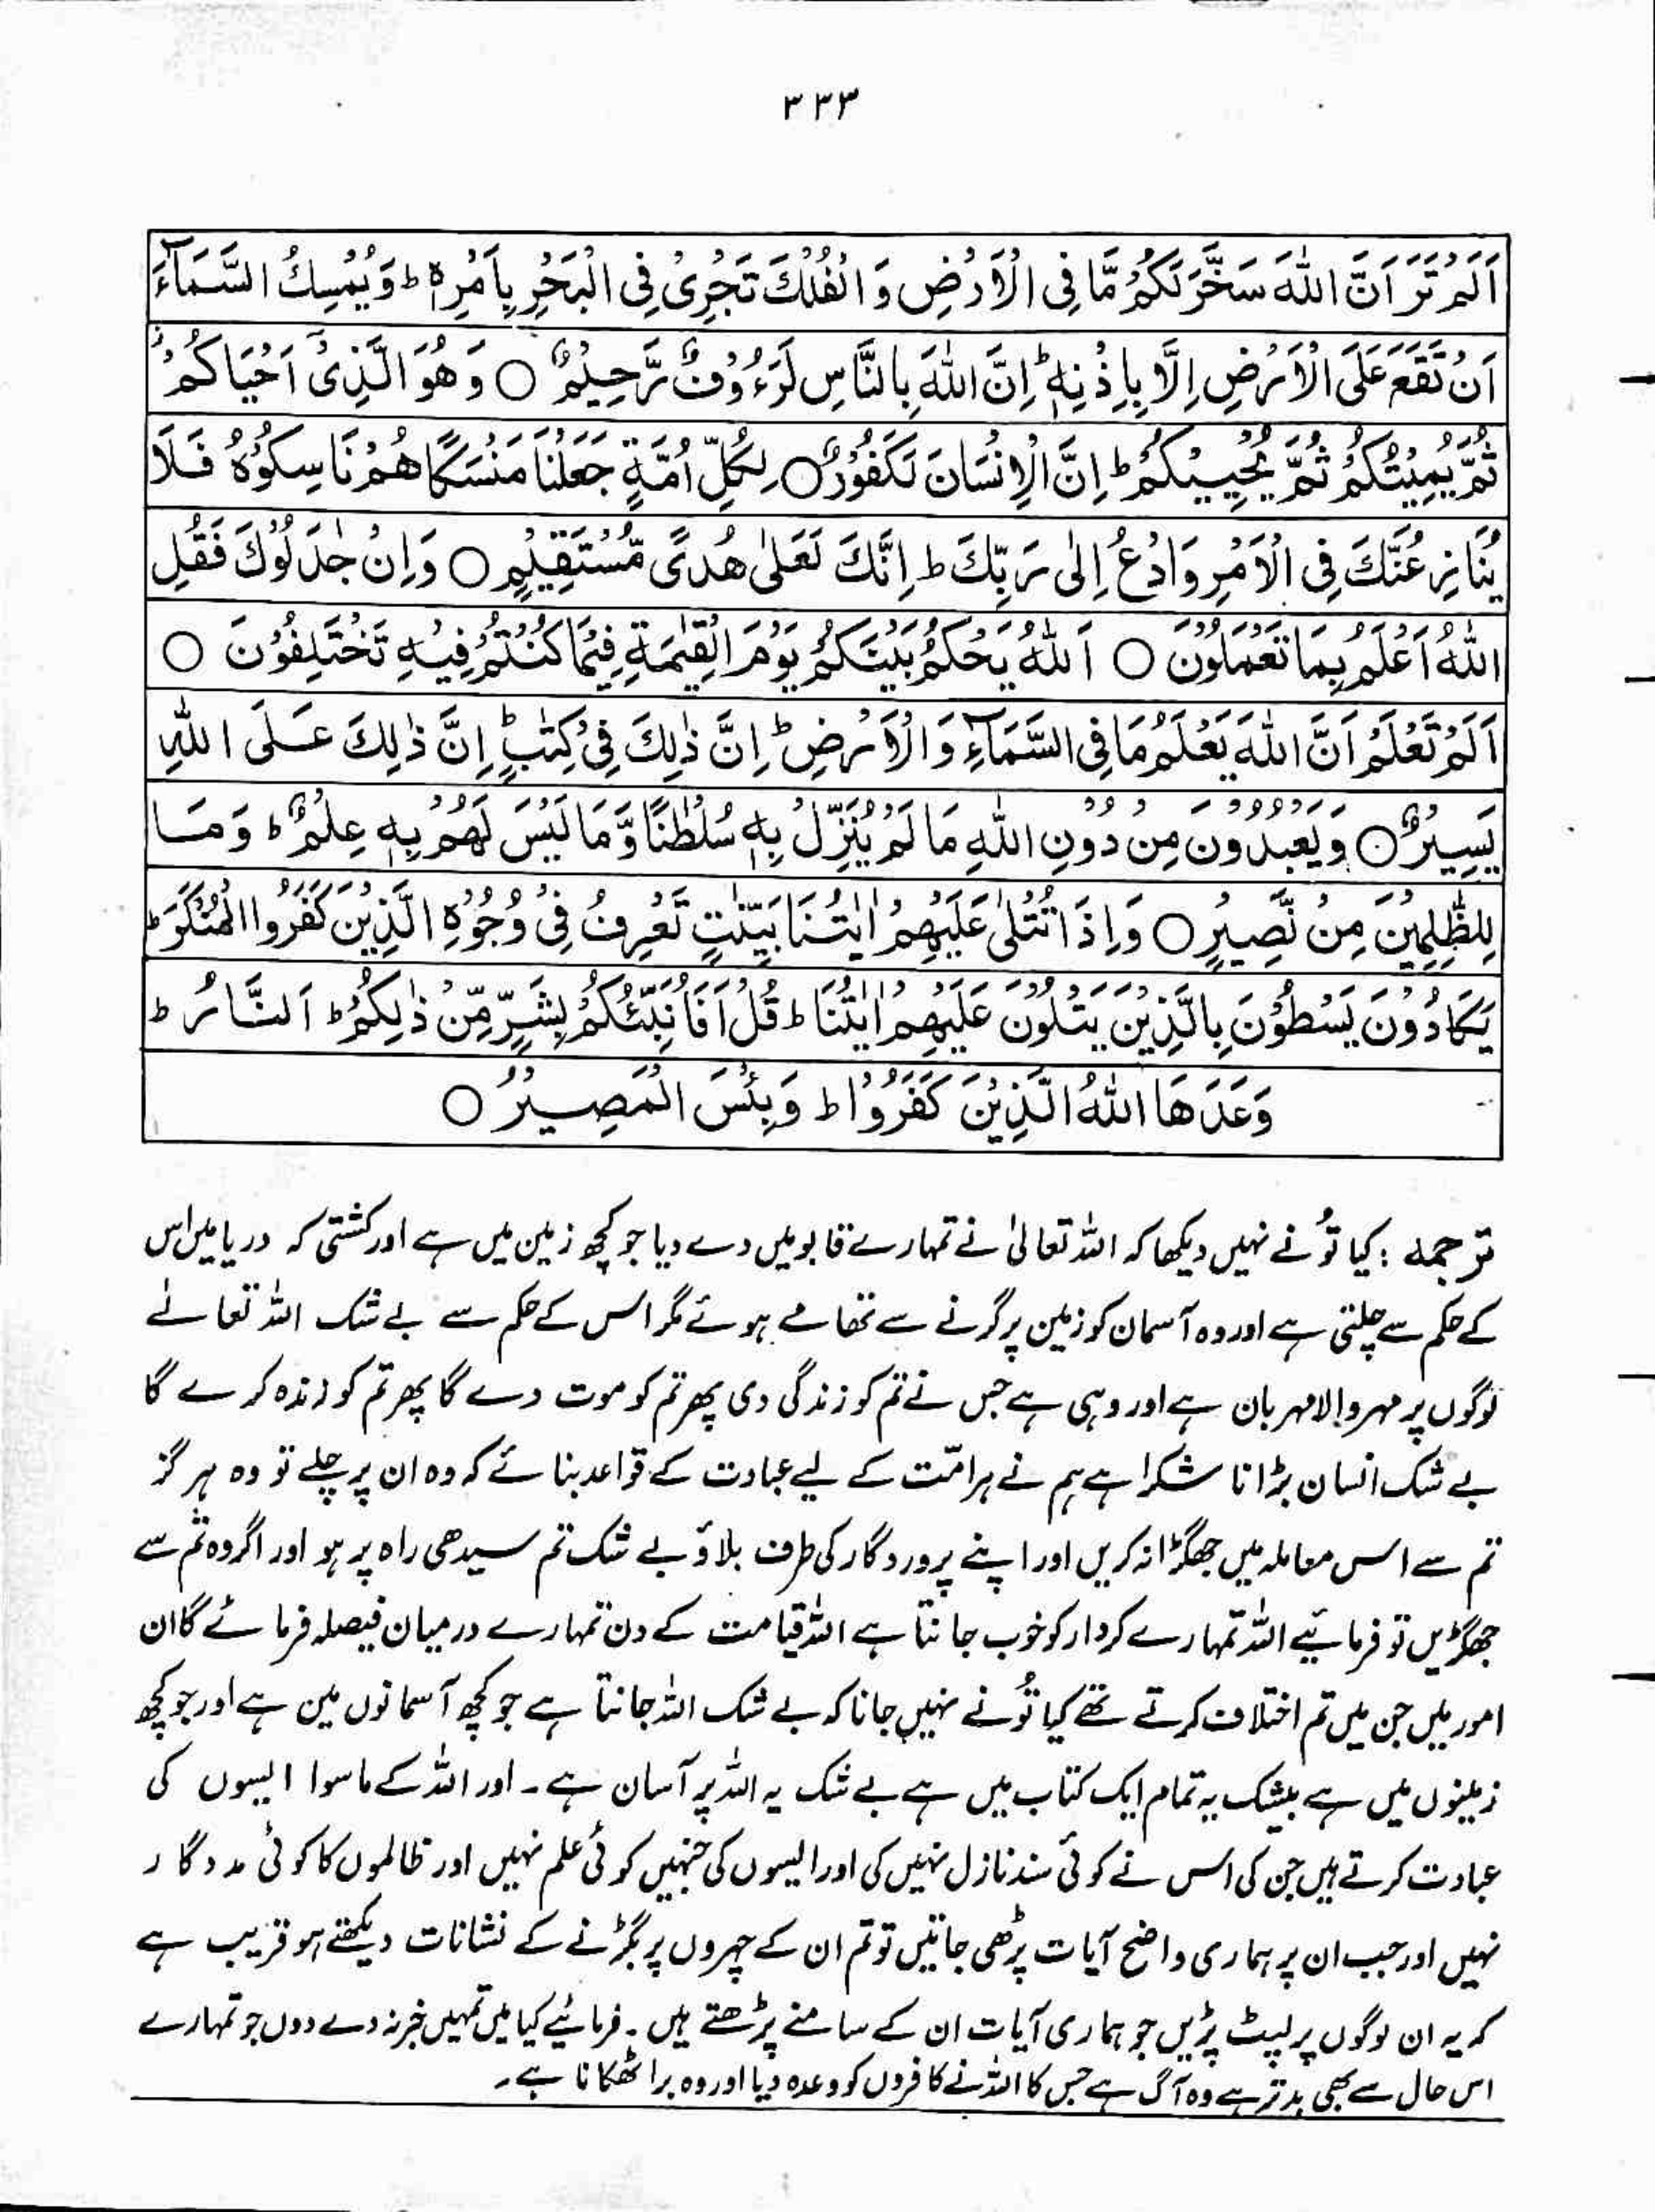 ۳۳۳
اَلَمْ تَرَ اَنَّ اللّٰهَ سَخَّرَ لَكُمْ مَّا فِی الْاَرْضِ وَ الْفُلْكَ تَجْرِیْ فِی الْبَحْرِ بِاَمْرِهٖ ط وَ یُمْسِكُ السَّمَآءَ
اَنْ تَقَعَ عَلَی الْاَرْضِ اِلَّا بِاِذْنِهٖ ط اِنَّ اللّٰهَ بِالنَّاسِ لَرَءُوْفٌ رَّحِیْمٌ ○ وَ هُوَ الَّذِیْٓ اَحْیَاكُمْ ز
ثُمَّ یُمِیْتُكُمْ ثُمَّ یُحْیِیْكُمْ ط اِنَّ الْاِنْسَانَ لَكَفُوْرٌ ○ لِكُلِّ اُمَّةٍ جَعَلْنَا مَنْسَكًا هُمْ نَاسِكُوْهُ فَلَا
یُنَازِعُنَّكَ فِی الْاَمْرِ وَادْعُ اِلٰی رَبِّكَ ط اِنَّكَ لَعَلٰی هُدًی مُّسْتَقِیْمٍ ○ وَ اِنْ جٰدَلُوْكَ فَقُلِ
اللّٰهُ اَعْلَمُ بِمَا تَعْمَلُوْنَ ○ اَللّٰهُ یَحْكُمُ بَیْنَكُمْ یَوْمَ الْقِیٰمَةِ فِیْمَا كُنْتُمْ فِیْهِ تَخْتَلِفُوْنَ ○
اَلَمْ تَعْلَمْ اَنَّ اللّٰهَ یَعْلَمُ مَا فِی السَّمَآءِ وَ الْاَرْضِ ط اِنَّ ذٰلِكَ فِیْ كِتٰبٍ ط اِنَّ ذٰلِكَ عَلَی اللّٰهِ
یَسِیْرٌ ○ وَ یَعْبُدُوْنَ مِنْ دُوْنِ اللّٰهِ مَا لَمْ یُنَزِّلْ بِهٖ سُلْطٰنًا وَّ مَا لَیْسَ لَهُمْ بِهٖ عِلْمٌ ط وَ مَا
لِلظّٰلِمِیْنَ مِنْ نَّصِیْرٍ ○ وَ اِذَا تُتْلٰی عَلَیْهِمْ اٰیٰتُنَا بَیِّنٰتٍ تَعْرِفُ فِیْ وُجُوْهِ الَّذِیْنَ كَفَرُوا الْمُنْكَرَ ط
یَكَادُوْنَ یَسْطُوْنَ بِالَّذِیْنَ یَتْلُوْنَ عَلَیْهِمْ اٰیٰتِنَا ط قُلْ اَفَاُنَبِّئُكُمْ بِشَرٍّ مِّنْ ذٰلِكُمْ ط اَلنَّارُ ط
وَعَدَهَا اللّٰهُ الَّذِیْنَ كَفَرُوْا ط وَ بِئْسَ الْمَصِیْرُ ○
ترجمہ : کیا تُو نے نہیں دیکھا کہ اللہ تعالیٰ نے تمہارے قابو میں دے دیا جو کچھ زمین میں ہے اور کشتی کہ دریا میں اس
کے حکم سے چلتی ہے اور وہ آسمان کو زمین پر گرنے سے تھامے ہوئے مگر اس کے حکم سے بے شک اللہ تعالےٰ
لوگوں پر مہر والا مہربان ہے اور وہی ہے جس نے تم کو زندگی دی پھر تم کو موت دے گا پھر تم کو زندہ کرے گا
بے شک انسان بڑا ناشکرا ہے ہم نے ہر امّت کے لیے عبادت کے قواعد بنائے کہ وہ ان پر چلے تو وہ ہرگز
تم سے اس معاملہ میں جھگڑا نہ کریں اور اپنے پروردگار کی طرف بلاؤ بے شک تم سیدھی راہ پر ہو اور اگر وہ تم سے
جھگڑیں تو فرمائیے اللہ تمہارے کردار کو خوب جانتا ہے اللہ قیامت کے دن تمہارے درمیان فیصلہ فرمائے گا ان
امور میں جن میں تم اختلاف کرتے تھے کیا تُو نے نہیں جانا کہ بے شک اللہ جانتا ہے جو کچھ آسمانوں مین ہے اور جو کچھ
زمینوں میں ہے بیشک یہ تمام ایک کتاب میں ہے بے شک یہ اللہ پر آسان ہے ۔ اور اللہ کے ماسوا ایسوں کی
عبادت کرتے ہیں جن کی اس نے کوئی سند نازل نہیں کی اور ایسوں کی جنہیں کوئی علم نہیں اور ظالموں کا کوئی مددگار
نہیں اور جب ان پر ہماری واضح آیات پڑھی جاتیں تو تم ان کے چہروں پر بگڑنے کے نشانات دیکھتے ہو قریب ہے
کہ یہ ان لوگوں پر لپٹ پڑیں جو ہماری آیات ان کے سامنے پڑھتے ہیں ۔ فرمائیے کیا میں تمہیں خبر نہ دے دوں جو تمہارے
اس حال سے بھی بدتر ہے وہ آگ ہے جس کا اللہ نے کافروں کو وعدہ دیا اور وہ برا ٹھکانا ہے ۔